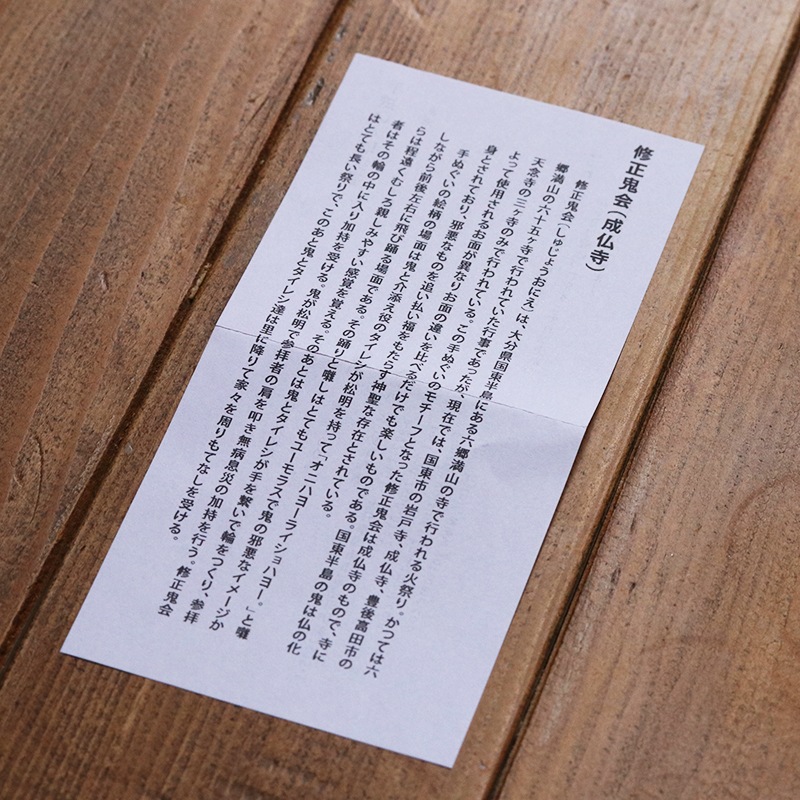 修正鬼会(成仏寺)
修正鬼会(しゅじょうおにえ)は、大分県国東半島にある六郷満山の寺で行われる火祭り。かつては六
郷満山の六十五ヶ寺で行われていた行事であったが、現在では、国東市の岩戸寺、成仏寺、豊後高田市の
天念寺の三ヶ寺のみで行われている。この手ぬぐいのモチーフとなった修正鬼会は成仏寺のもので、寺に
よって使用されるお面が異なりお面の違いを比べるだけでも楽しいものである。国東半島の鬼は仏の化
身とされており、邪悪なものを追い払い福をもたらす神聖な存在とされている。
手ぬぐいの絵柄の場面は鬼と介添え役のタイレシが松明を持って「オニハヨーライショハヨー。」と囃
しながら前後左右に飛び踊る場面である。その踊りと囃しはとてもユーモラスで鬼の邪悪なイメージか
らは程遠くむしろ親しみやすい感覚を覚える。そのあとは鬼とタイレシが手を繋いで輪をつくり、参拝
者はその輪の中に入り加持を受ける。鬼が松明で参拝者の肩を叩き無病息災の加持を行う。修正鬼会
はとても長い祭りで、このあと鬼とタイレシ達は里に降りて家々を周りもてなしを受ける。